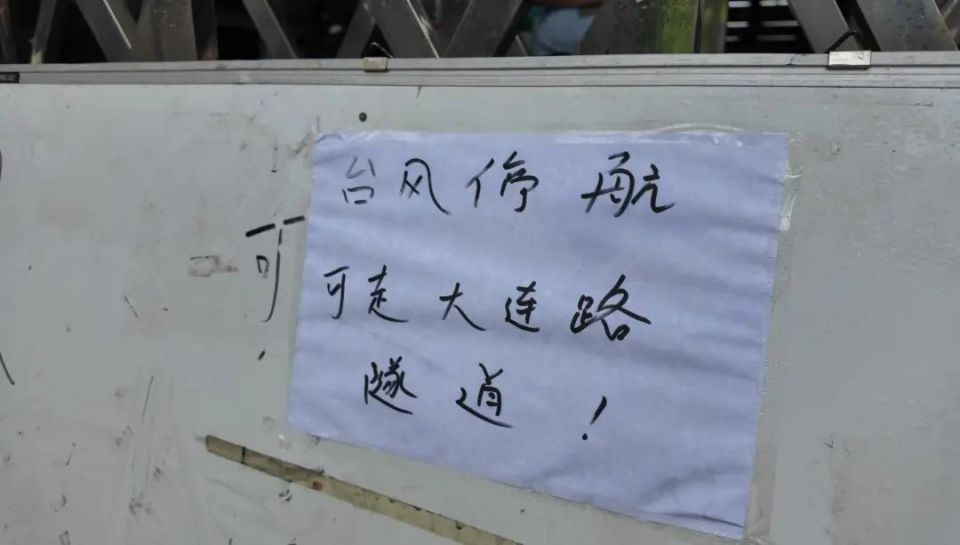 台风停航
可走大连路
隧道!
可